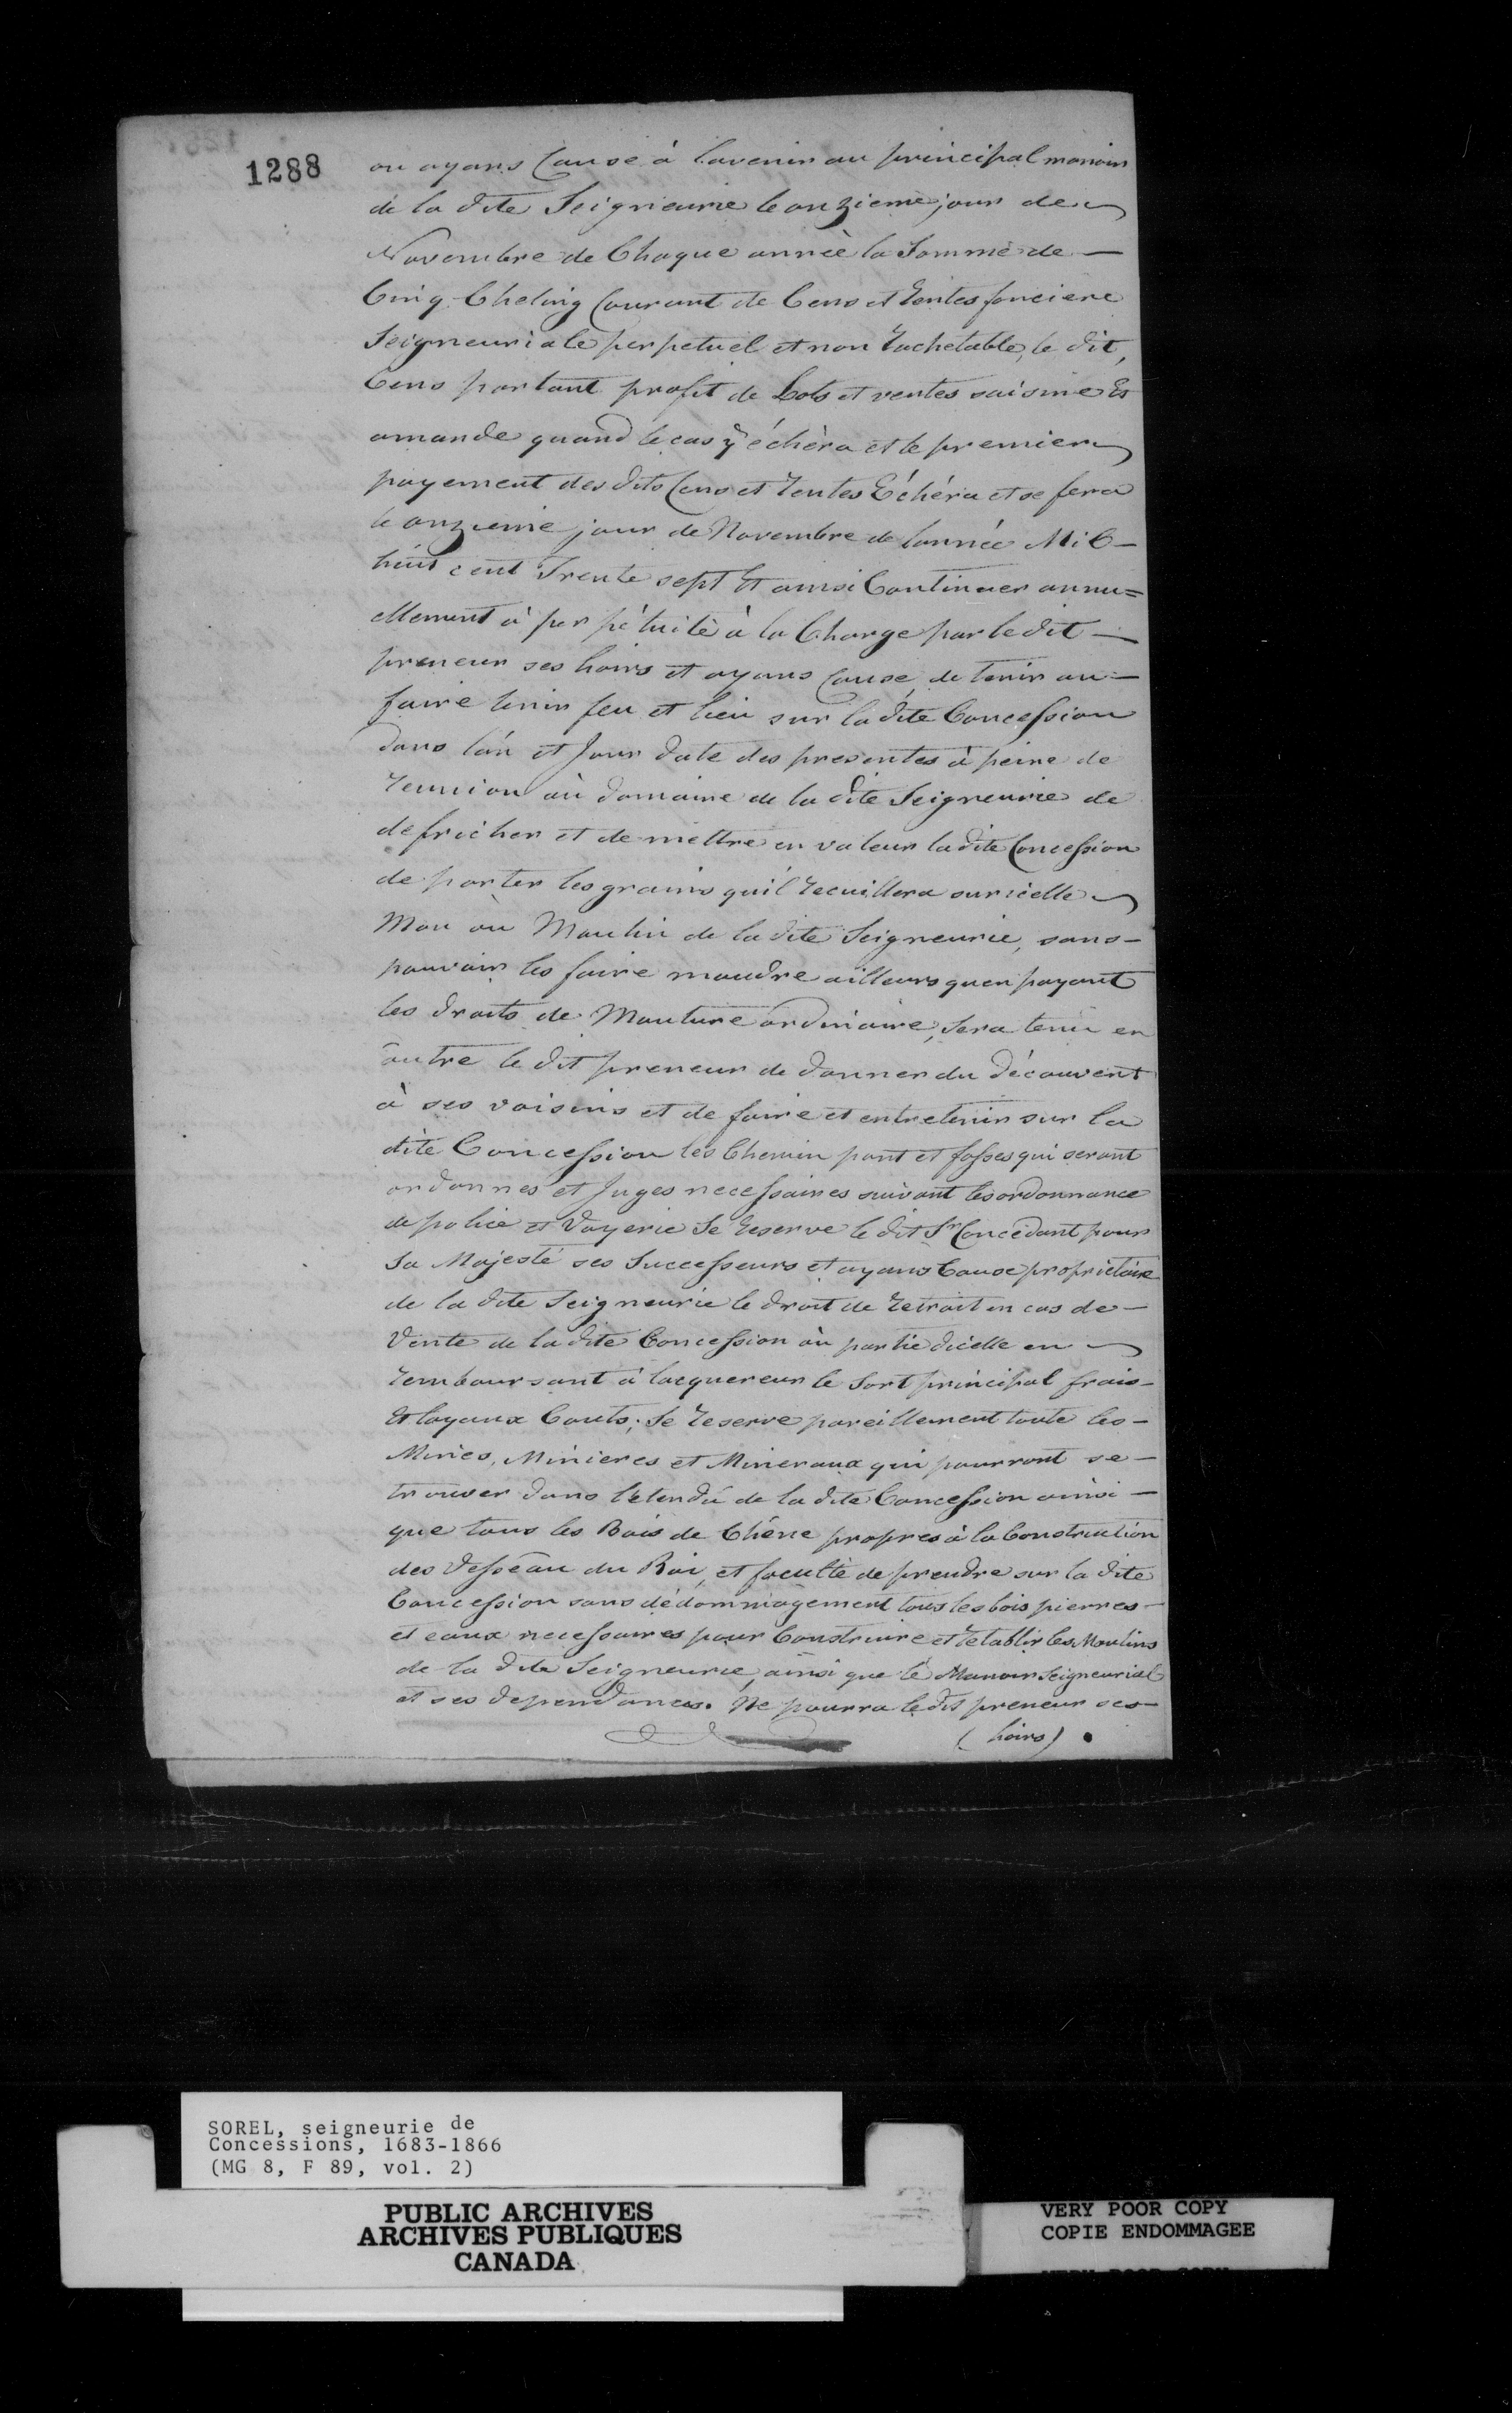 1288
ou ayans Cause à lavenir au principal manoir
de la dite Seigneurie le onzieme jour de
Novembre de Chaque année la Somme de —
Cinq Cheling Courant de Cens et Rentes fonciere
Seigneuriale perpetuel et non Rachetable, le dit,
Cens portant profit de Lots et ventes saisine Et
amande quand le cas y échèra et le premier
payement des dits Cens et Rentes Echéra et se fera
le onzieme jour de Novembre de lannée Mil —
huit cent Trente sept Et ainsi Continuer annu=
ellement à perpétuité à la Charge par le dit —
preneur ses hoirs et ayans Cause, de tenir ou —
faire tenir feu et lieu sur la dite Concession
dans lán et Jour date des presentes à peine de
Reunion aù domaine de la dite Seigneurie de
defricher et de mettre en valeur la dite Concession
de porter les grains quil Recuillera sur icelle
Mou aù Moulin de la dite Seigneurie, sans —
pouvoir les faire moudre ailleurs quen payant
les droits de Mouture ordinaire, Sera tenu en
outre le dit preneur de donner du découvert
à ses voisins et de faire et entretenir sur la
dite Concession les Chemin pont et fosses qui seront
ordonnés et Juges necessaires suivant les ordonnance
de police et Voyerie Se Reserve le dit Sr. Concédant pour
Sa Majesté ses Successeurs et ayans Cause propriétaire
de la dite Seigneurie le droit de Retrait en cas de —
Vente de la dite Concession où partie dicelle en
Remboursant à lacquereur le Sort principal frais —
Et loyaux Couts; Se Reserve pareillement toute les —
Mines, Minieres et Mineraux qui pourront se —
trouver dans létendú de la dite Concession ainsi —
que tous les Bois de Chêne propres à la Construction
des Vesseau du Roi, et faculté de prendre sur la dite
Concession sans dédommagement tous les bois pierres —
et eaux necessaires pour Construire et Retablir les Moulins
de la dite Seigneurie, ainsi que le Manoir Seigneurial
et ses dependances. Ne pourra le dit preneur ses —
(hoirs).
SOREL, seigneurie de
Concessions, 1683-1866
(MG 8, F 89, vol. 2)
PUBLIC ARCHIVES
ARCHIVES PUBLIQUES
CANADA
VERY POOR COPY
COPIE ENDOMMAGEE